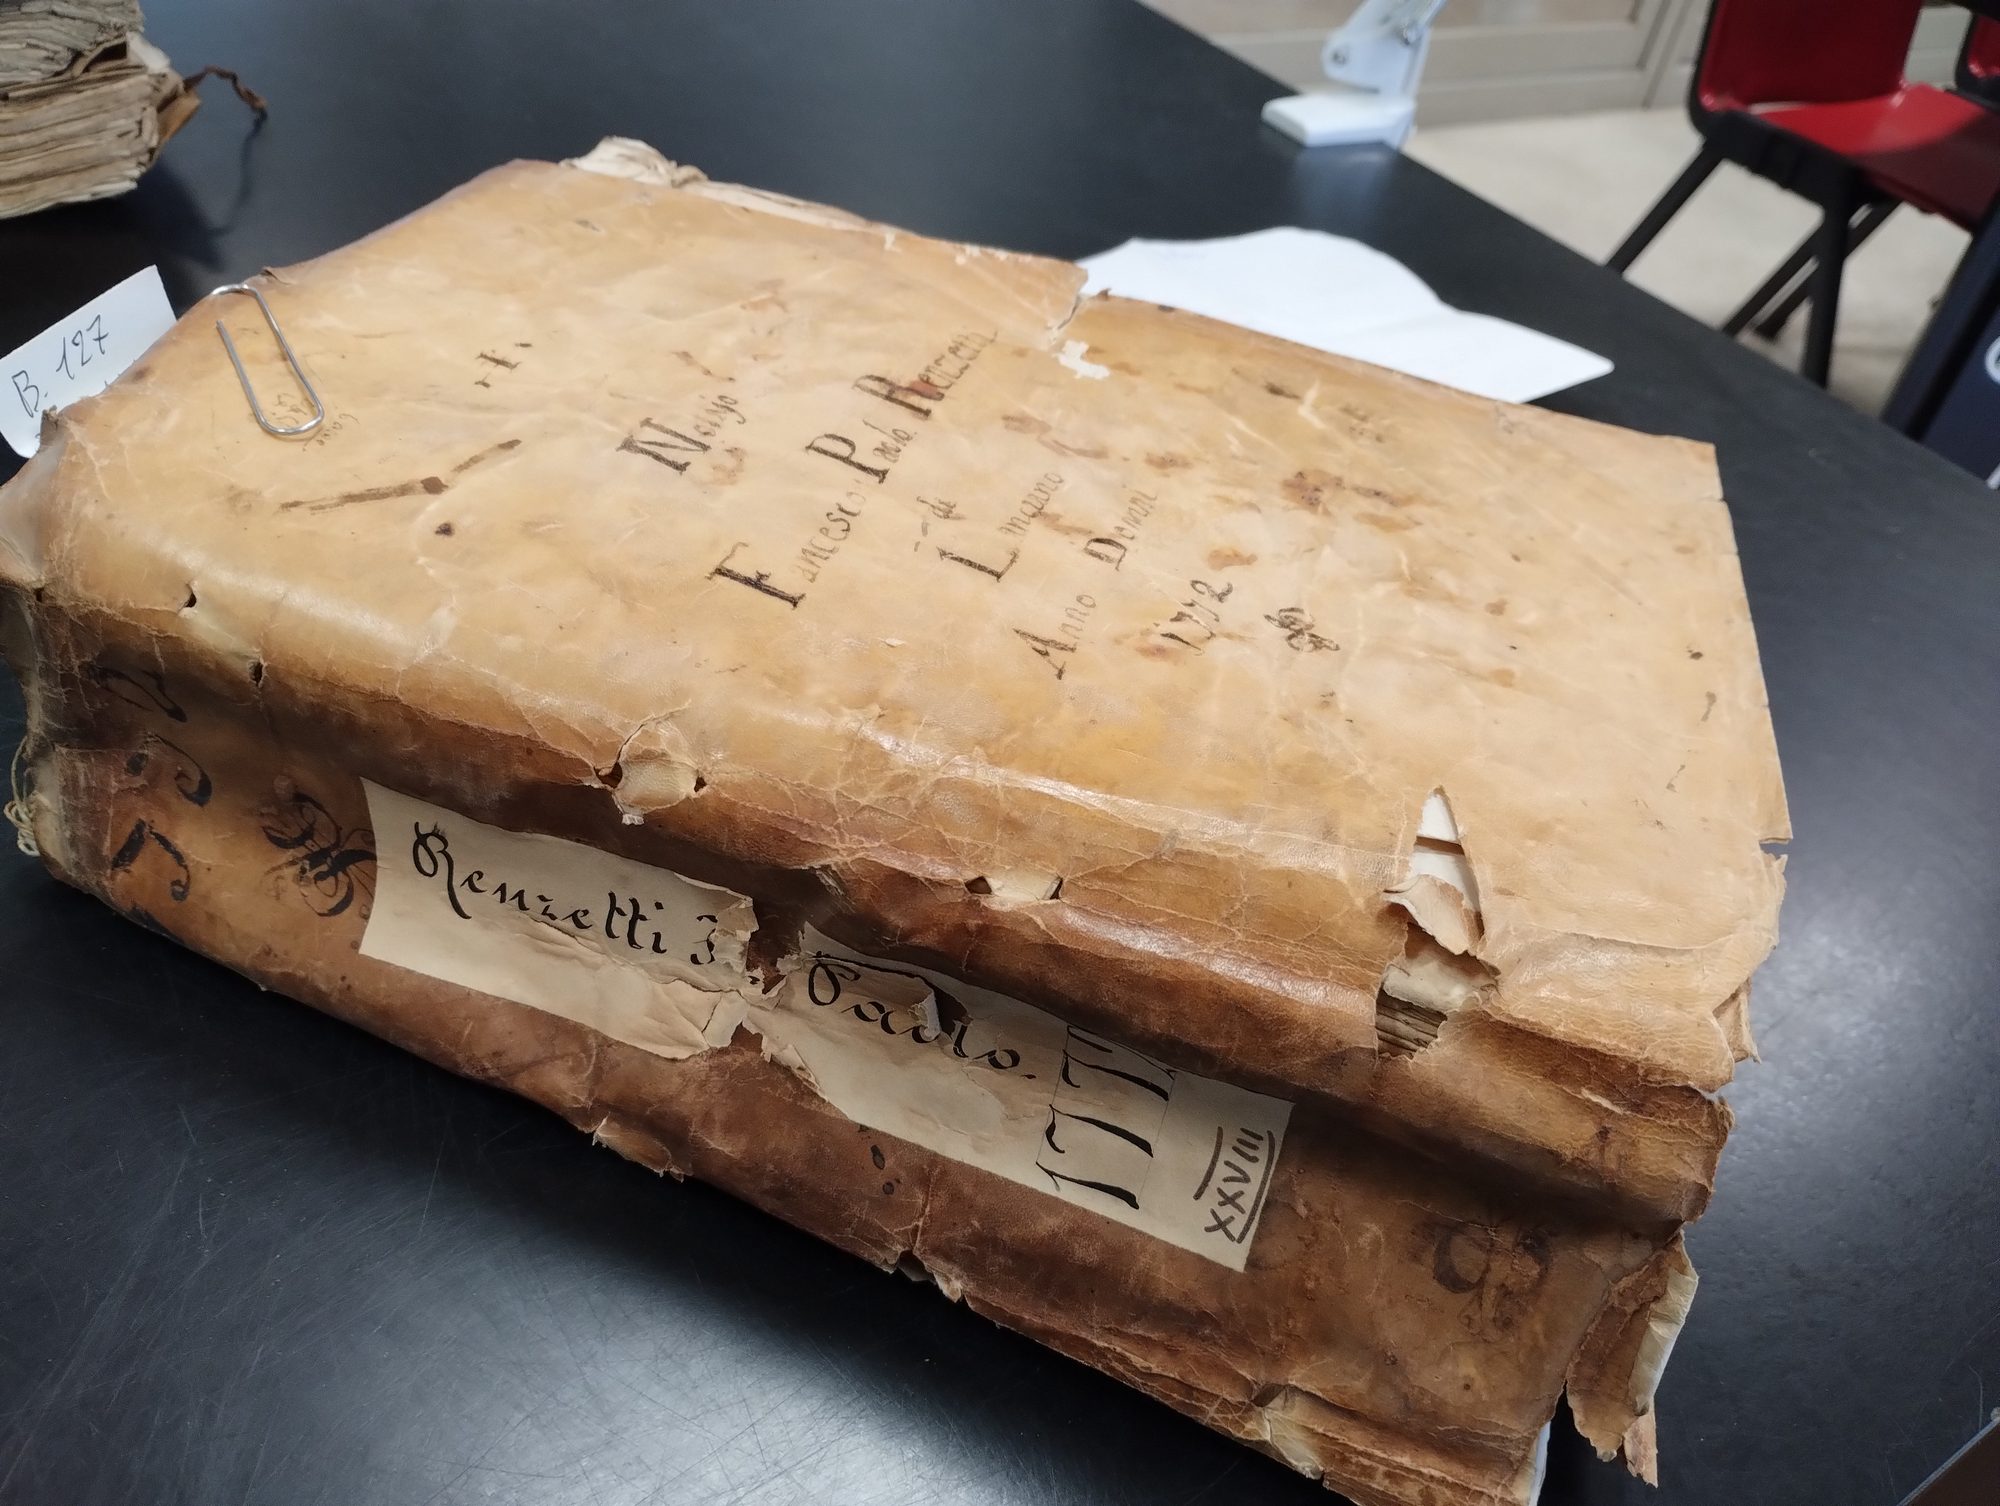 B. 127
Francesco Paolo Renzetti
di
Lanciano
Anno Domini
1772
Renzetti F. Paolo.
1772
XXVIII